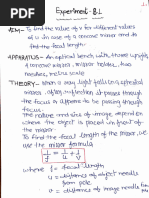 Experiment-B1
AIM- To find the value of v for different values
of u in case of a concave mirror and to
find the focal length.
APPARATUS- An optical bench with three uprights,
a concave mirror, mirror holder, two
needles, metre scale
THEORY- When a ray of light falls on a spherical
mirror, after reflection it passes through
the focus or appears to be passing through
focus.
The image formed by the concave mirror
depends on the size, nature, position
where the object is placed in front of
the mirror.
To find the focal length of the mirror, we
use the mirror formula
1/f = 1/u + 1/v
where, f = focal length
u = distance of object needle
from pole
v = distance of image needle from